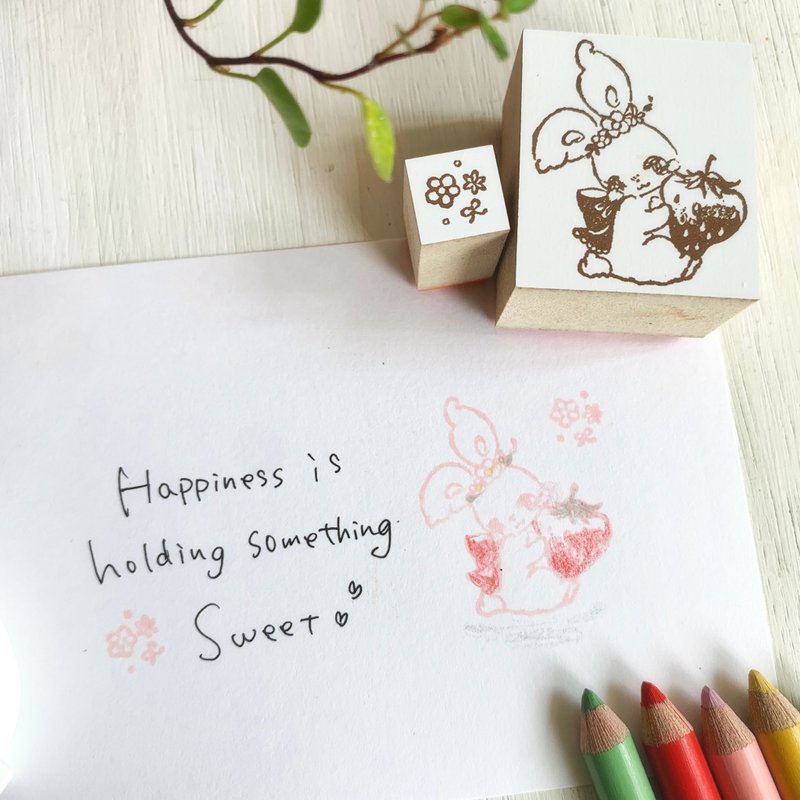 Happiness is
holding something
Sweet